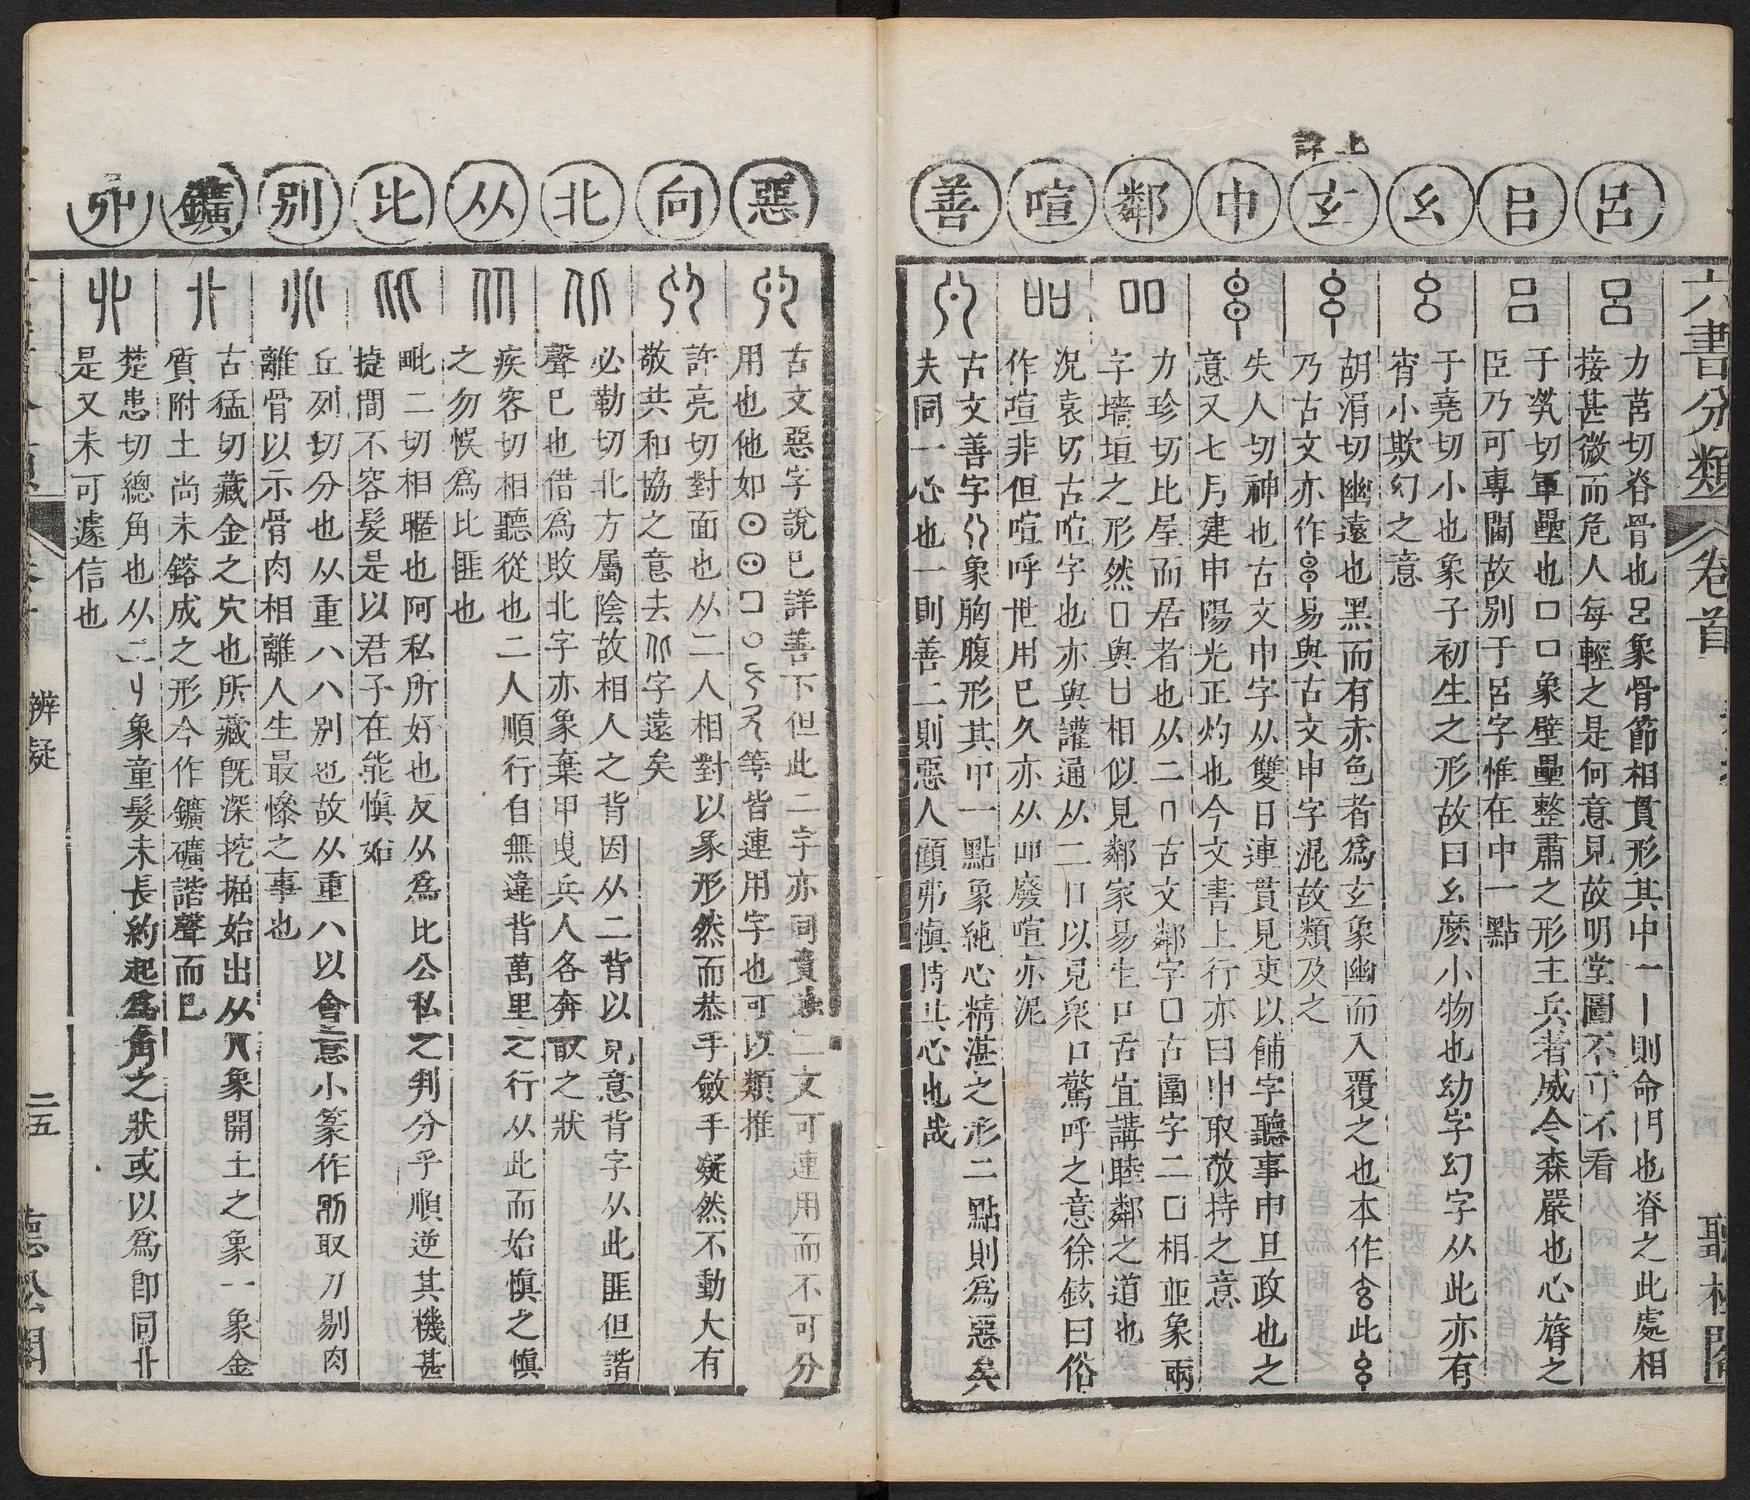 六書分類 卷首
上詳
呂 𠯑 幺 玄 申 鄰 喧 善
力莒切脊骨也呂象骨節相貫形其中一丨則命門也脊之此處相
接甚微而危人每輕之是何意見故明堂圖不可不看
于㷀切軍壘也口口象壁壘整肅之形主兵者威令森嚴也心膂之
臣乃可專閫故别于呂字惟在中一點
于堯切小也象子初生之形故曰幺麽小物也幼字幻字从此亦有
宵小欺幻之意
胡涓切幽遠也黑而有赤色者為玄象幽而入覆之也本作
乃古文亦作
易與古文申字混故類及之
失人切神也古文申字从雙日連貫見吏以餔字聽事申旦政也之
意又七月建申陽光正灼也今文書上行亦曰申取敬持之意
力珍切比屋而居者也从二
古文鄰字口古圍字二口相並象兩
字墻垣之形然口與甘相似見鄰家易生口舌宜講睦鄰之道也
況袁切古喧字也亦與讙通从二口以見衆口驚呼之意徐鉉曰俗
作喧非但喧呼世用已久亦从吅廢喧亦泥
古文善字八象胸腹形其中一點象純心精湛之形二點則為惡矣
夫同一心也一則善二則惡人顧弗慎持其心也哉
惡 向 北 从 比 别 鑛 丱
古文惡字說已詳善下但此二字亦同
二文可連用而不可分
用也他如
等皆連用字也可以類推
許亮切對面也从二人相對以象形然而恭手斂手凝然不動大有
敬共和協之意去
字遠矣
必勒切北方屬陰故相人之背因从二背以見意背字从此匪但諧
聲已也借為敗北字亦象棄甲曳兵人各奔散之狀
疾容切相聽從也二人順行自無違背萬里之行从此而始慎之慎
之勿悞為比匪也
毗二切相暱也阿私所好也反从為比公私之判分乎順逆其機甚
捷間不容髮是以君子在能慎始
丘列切分也从重八八别也故从重八以會意小篆作𠛰取刀剔肉
離骨以示骨肉相離人生最慘之事也
古猛切藏金之穴也所藏旣深挖掘始出从
象開土之象一象金
質附土尚未鎔成之形今作鑛礦諧聲而已
楚患切總角也从二
象童髮未長約起為角之狀或以為卽同卝
是又未可遽信也
辨疑 二五